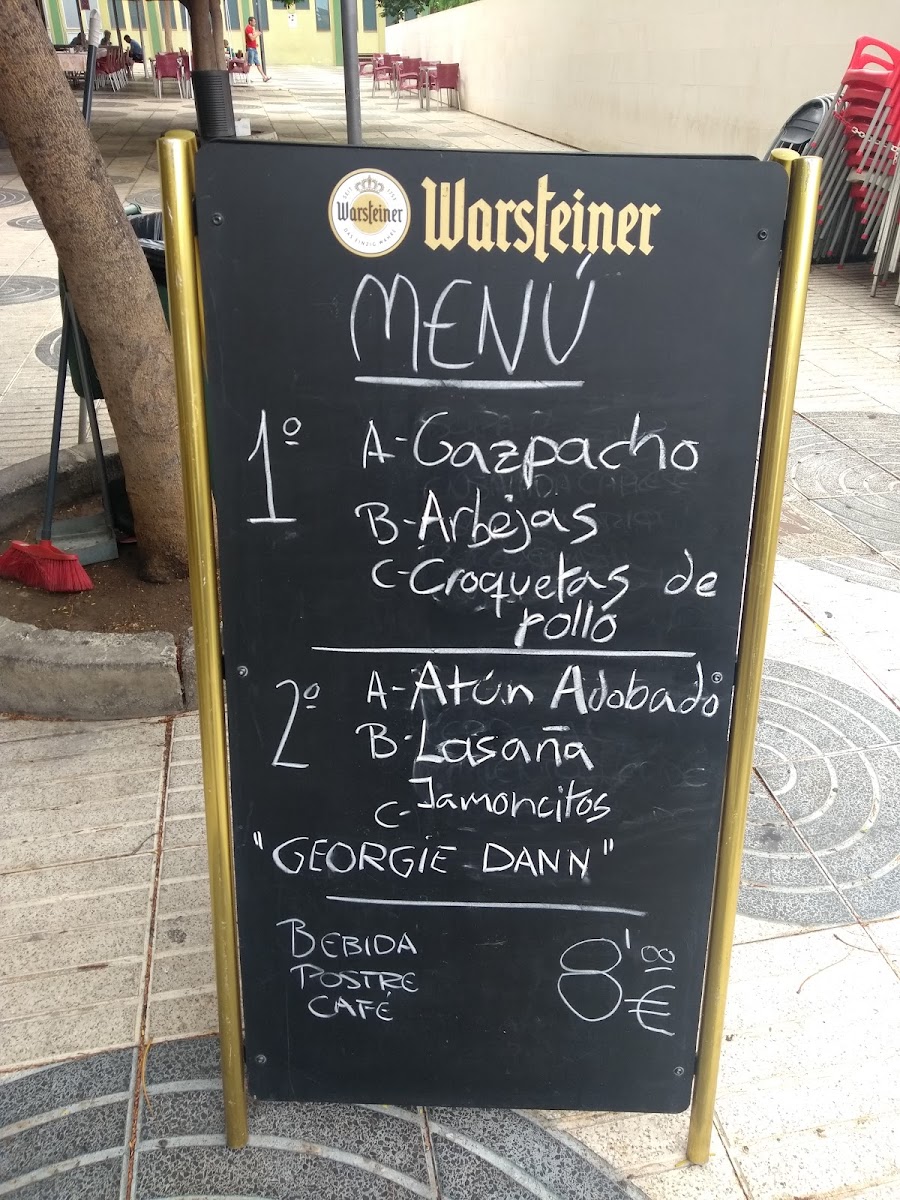 Warsteiner Warsteiner
DAS EINZIG WAHRE
MENÚ
1º A-Gazpacho
B-Arbejas
C-Croquetas de
pollo
2º A-Atún Adobado
B-Lasaña
C-Jamoncitos
"GEORGIE DANN"
BEBIDA
POSTRE
CAFÉ
8'00
€